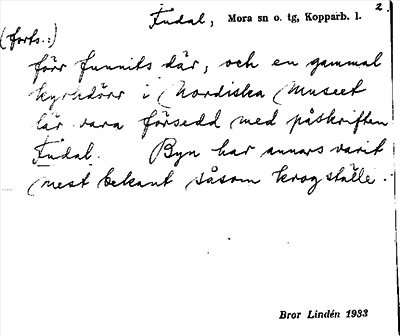 2.
Fudal, Mora sn o. tg, Kopparb. l.
(forts.:)
förr funnits där, och en gammal
kyrkdörr i Nordiska Museet
lär vara försedd med påskriften
Fudal. Byn har annars varit
mest bekant såsom krogställe.
Bror Lindén 1933